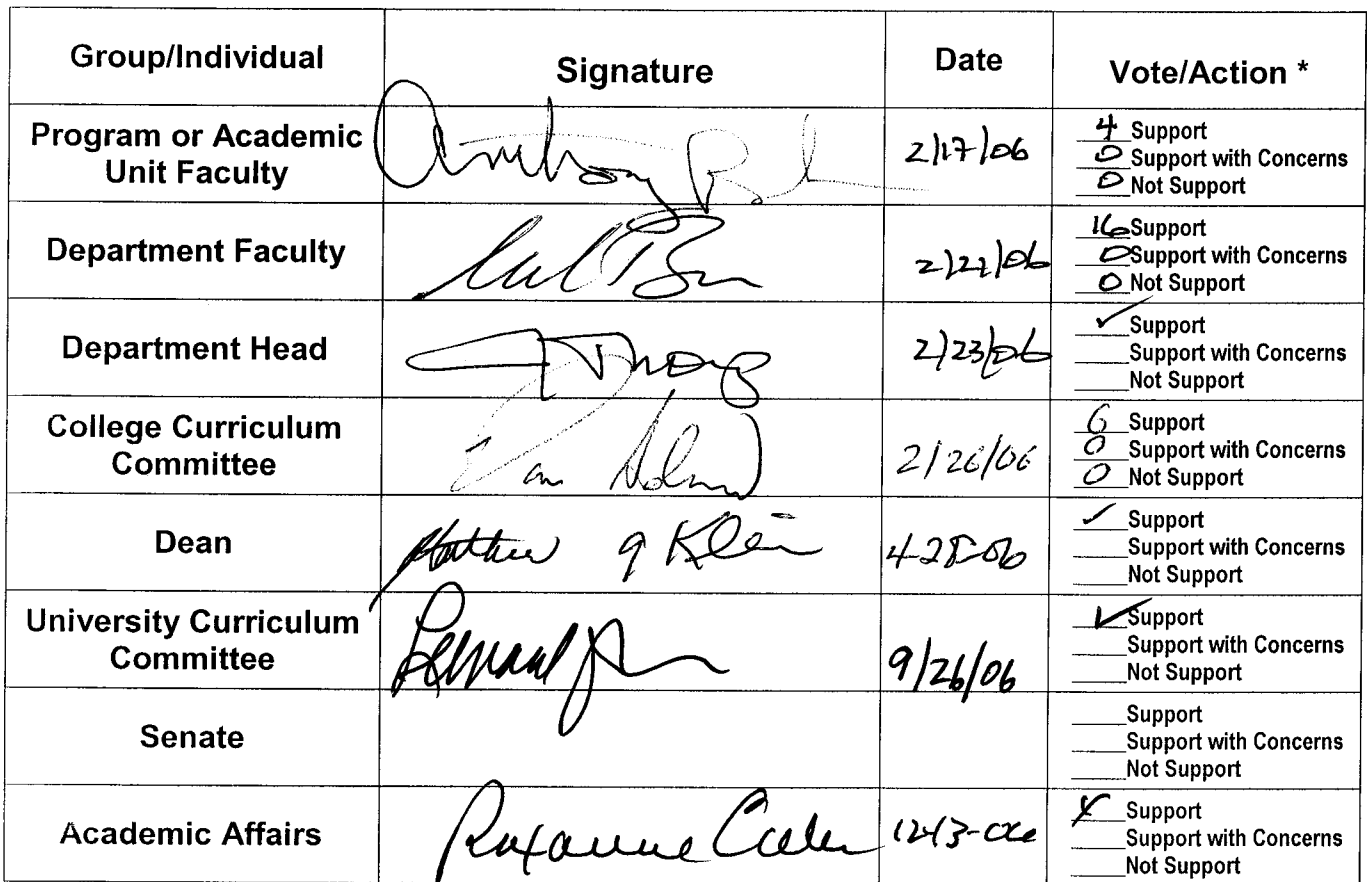 Group/Individual Signature Date Vote/Action *
Program or Academic Unit Faculty
Anthony 2/17/06
4 Support
0 Support with Concerns
0 Not Support
Department Faculty
2/22/06
16 Support
0 Support with Concerns
0 Not Support
Department Head
2/23/06
✓ Support
Support with Concerns
Not Support
College Curriculum Committee
2/26/06
6 Support
0 Support with Concerns
0 Not Support
Dean
Matthew A Klein 4-28-06
✓ Support
Support with Concerns
Not Support
University Curriculum Committee
9/26/06
✓ Support
Support with Concerns
Not Support
Senate
Support
Support with Concerns
Not Support
Academic Affairs
Roxanne 12-13-06
X Support
Support with Concerns
Not Support